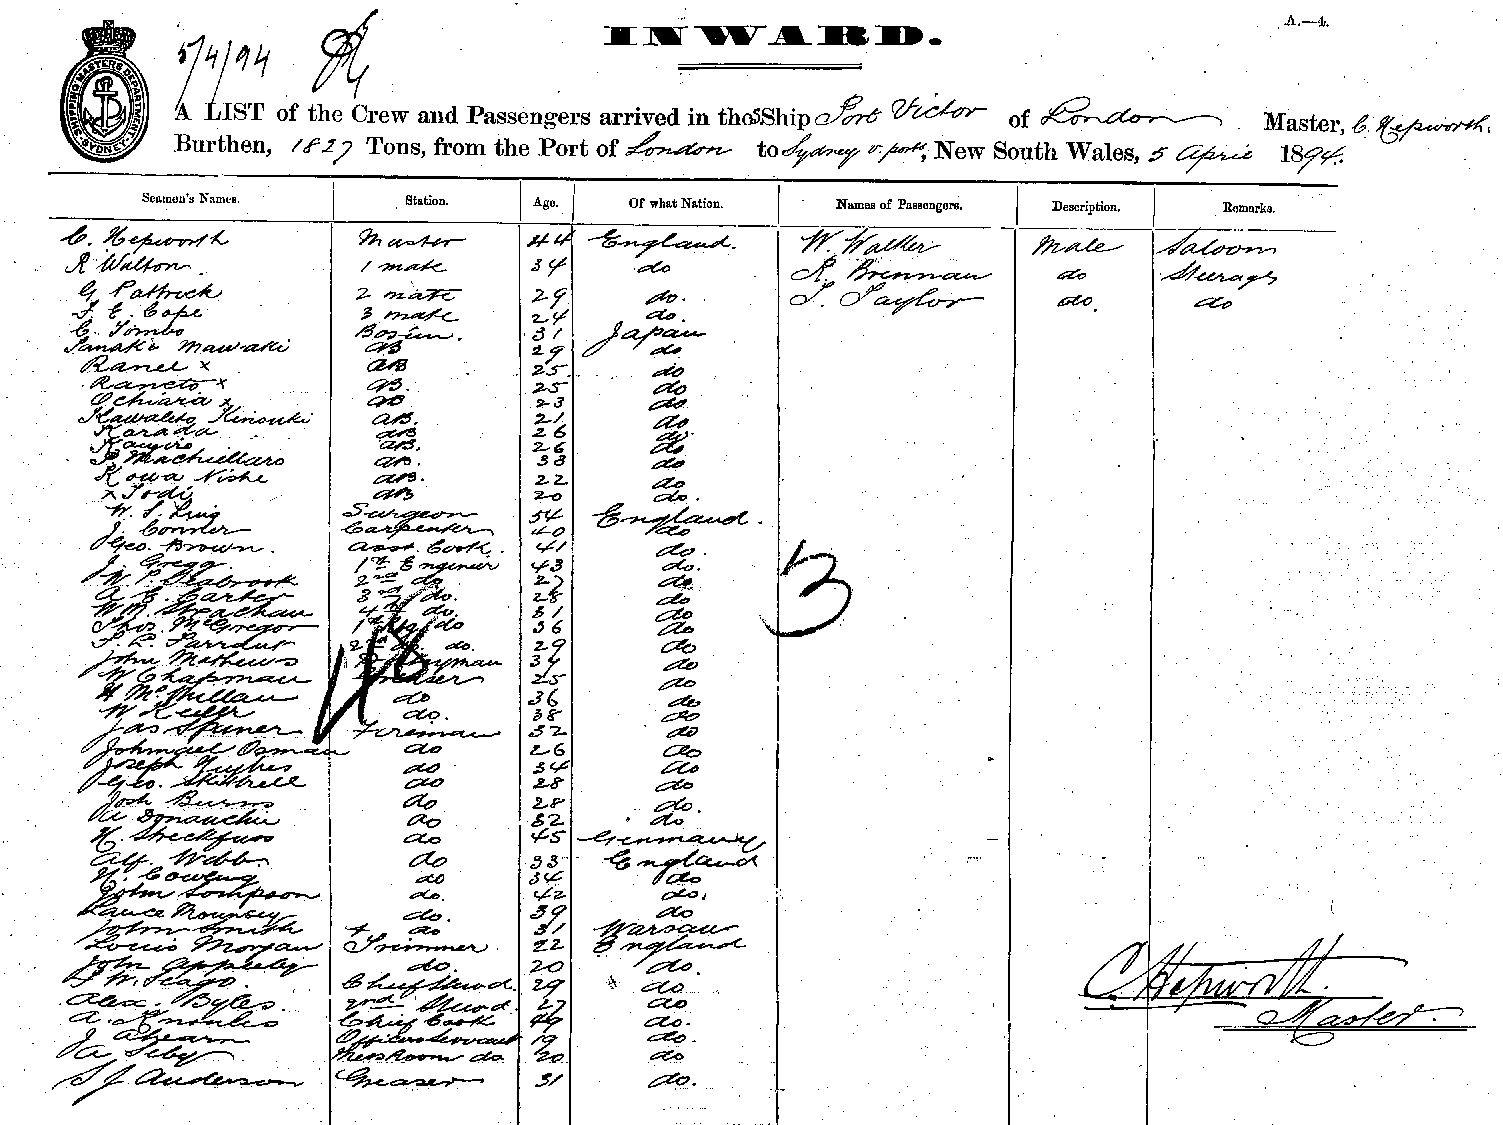 A.—4.
INWARD.
5/4/94
SHIPPING MASTERS DEPARTMENT SYDNEY
A LIST of the Crew and Passengers arrived in the SShip Port Victor of London Master, C. Hepworth.
Burthen, 1827 Tons, from the Port of London to Sydney v. ports, New South Wales, 5 April 1894.
Seamen's Names. Station. Age. Of what Nation. Names of Passengers. Description. Remarks.
C. Hepworth Master 44 England. W. Walker Male Saloon
R Walton 1 mate 34 do R. Brennan do Steerage
G Pattrick 2 mate 29 do. T. Taylor do. do
F. E. Cope 3 mate 24 do.
C. Tombo Bosun. 31 Japan
Tanaki Mawaki AB 29 do
Ranel x AB 25 do
Raneto x AB. 25 do
Ochiara x AB 23 do
Kawaleto Kinouki AB. 21 do
Karada AB 26 do
AB. 26 do
AB. 33 do
Kowa Nishe AB. 22 do
x Todi AB 20 do.
W. S. Surgeon 54 England.
J. Conner Carpenter 40 do
Geo. Brown. Asst. Cook. 41 do.
J. Gregg 1st Engineer 43 do.
W. P. Seabrook 2nd do. 27 do
A E. Carter 3rd do. 28 do
W. Strachan 4th do. 31 do
Thos. McGregor 1st do 36 do
F. L. 2nd do. 29 do
John Mathews 37 do
W Chapman Greaser 25 do
H McMillan do 36 do
W do. 38 do
Jas Fireman 32 do
Osman do 26 do
Joseph Hughes do 34 do
Geo. do 28 do
Josh Burns do 28 do.
A Donauchie do 32 do
H. Streckfuss do 45 Germany
Alf. Webb do 33 England
W. Cowling do 34 do
John do. 42 do.
Lance Mounsey do. 39 do
John Smith + do 31 Warsaw
Louis Morgan Trimmer 22 England
John Appleby do. 20 do.
W. Seago. Chief Stewd. 29 do.
Alex. Byles. 2nd Stewd. 27 do
A. Knowles Chief Cook 49 do.
J Ahearn Officers Servant 19 do.
A Seby Mess Room do. 20 do
S J Anderson Greaser 31 do.
48
3
C. Hepworth.
Master.